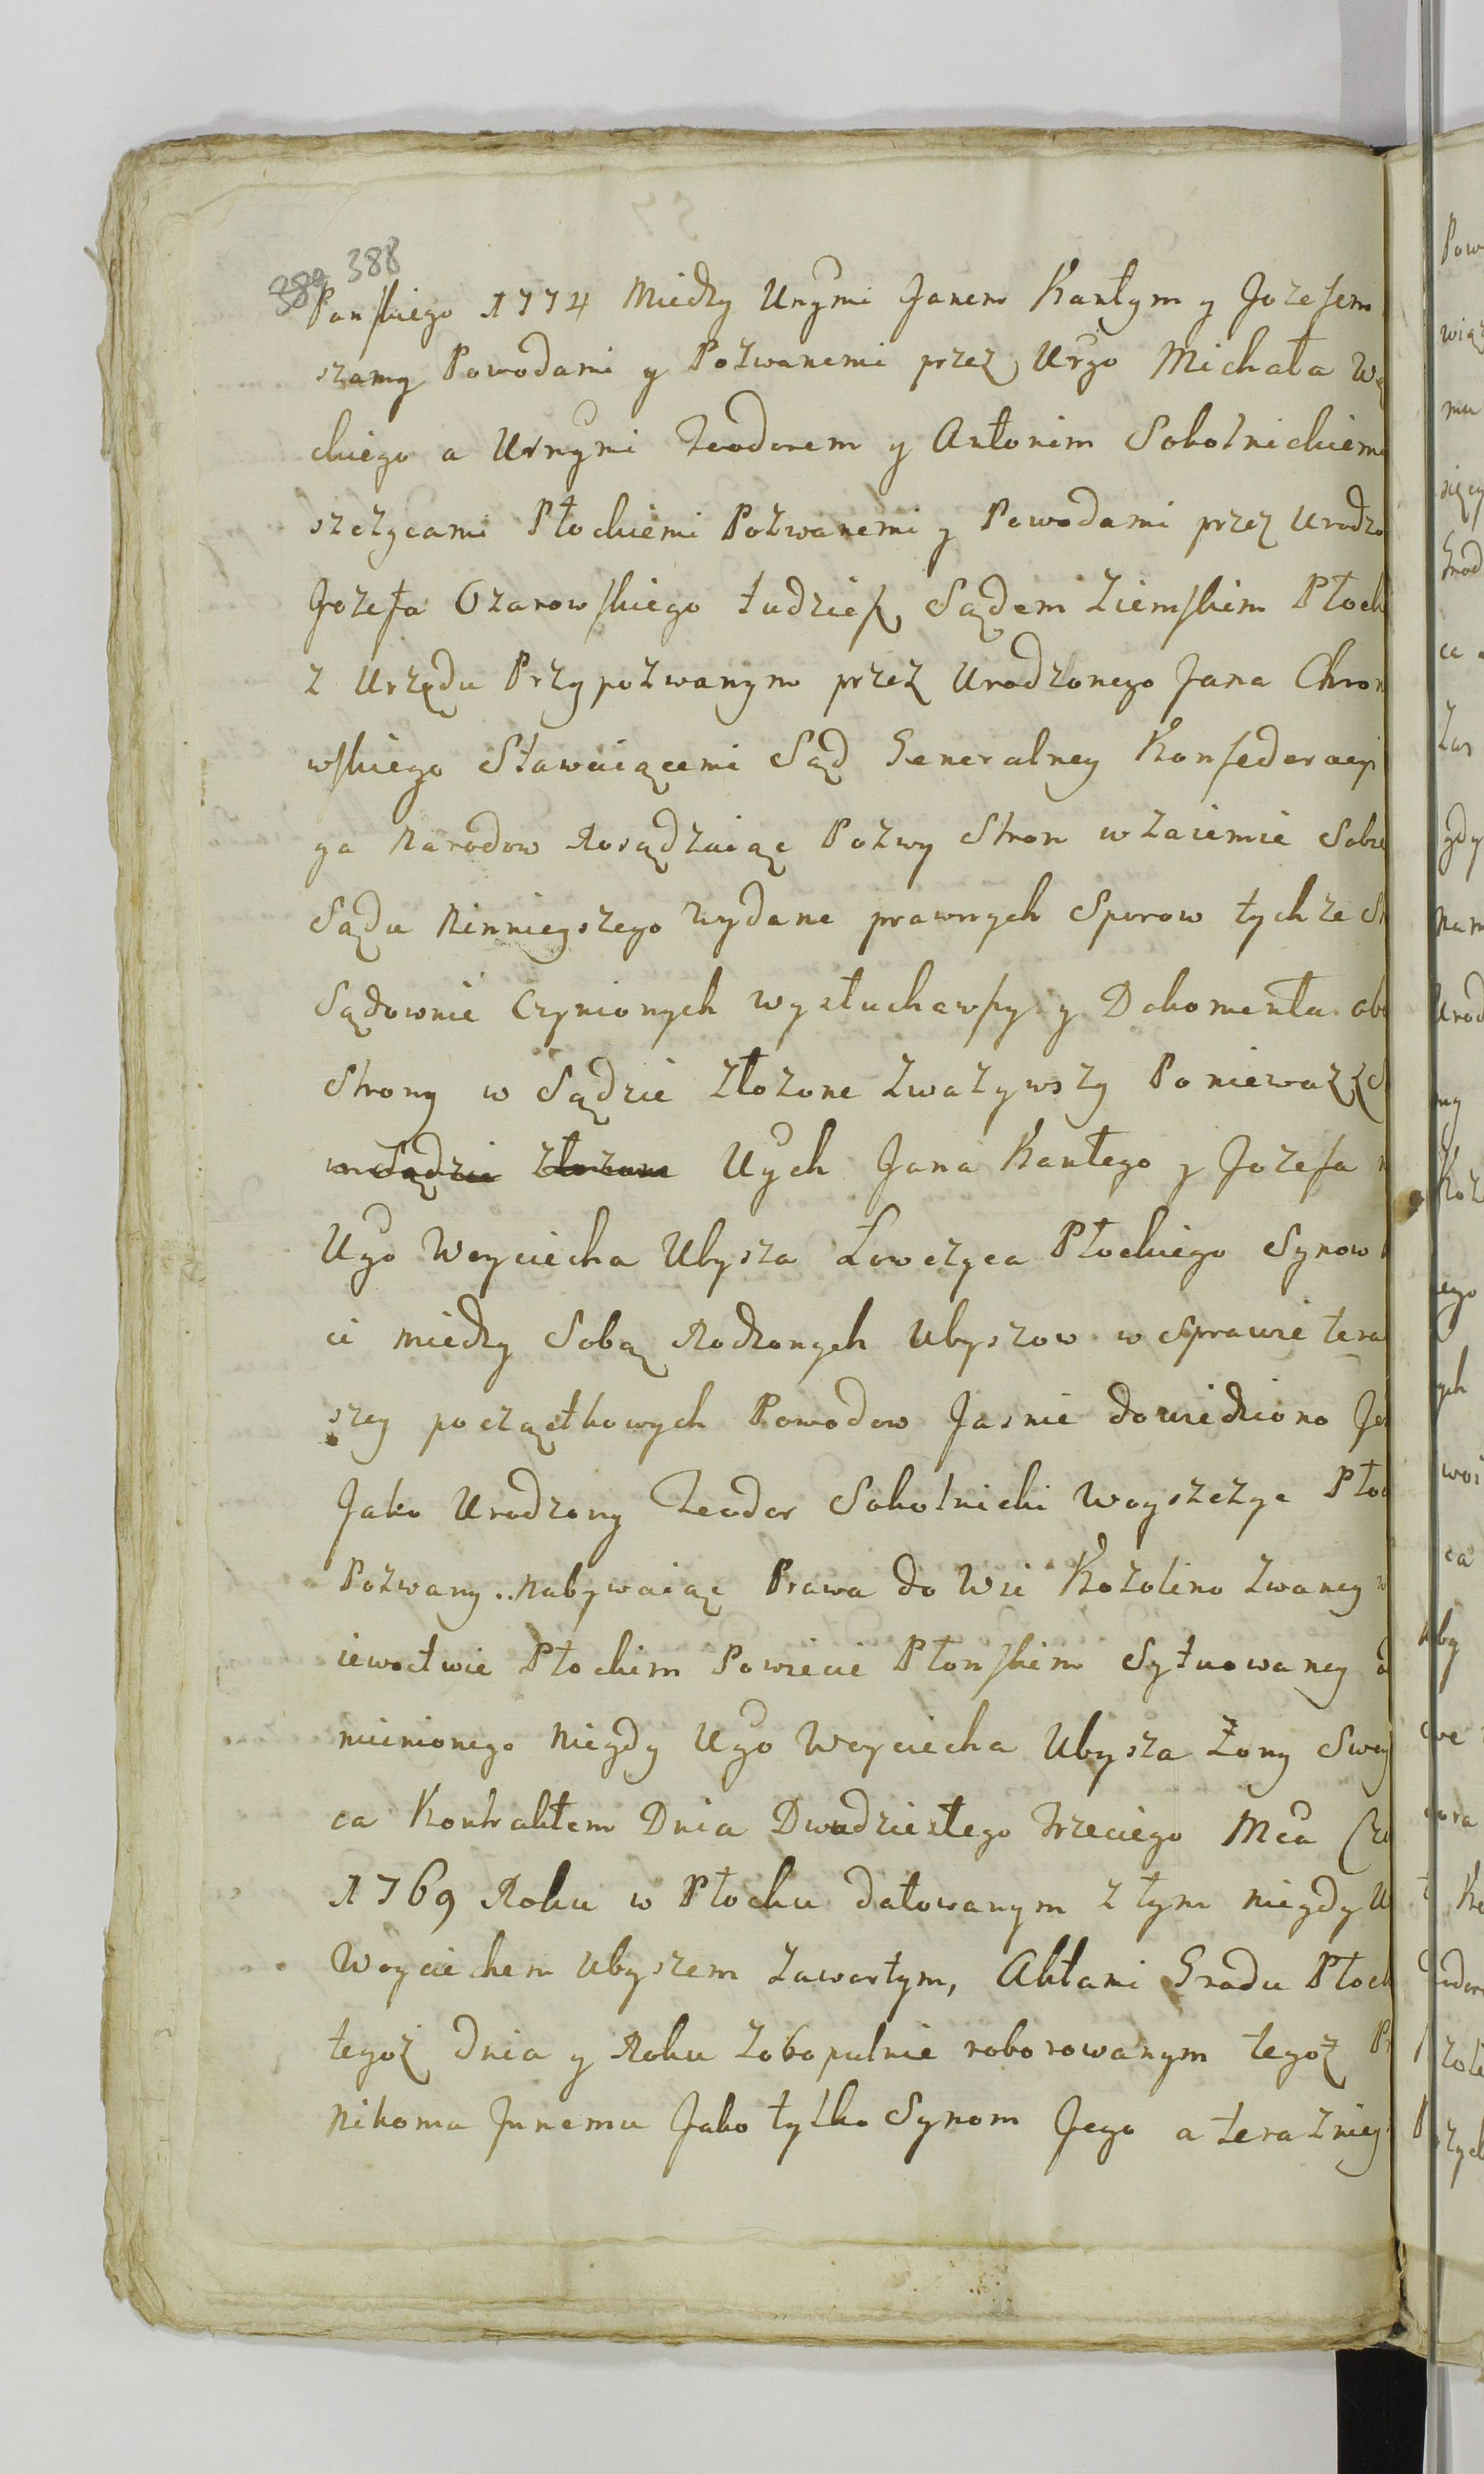 388
Panskiego 1774 Między Urnymi Janem Kantym y Jozefem
szamy Powodami y Pozwanemi przez Urgo Michała Wę
ckiego a Urnymi Teodorem y Antonim Sokolnickiemi
szczycami Płockiemi Pozwanemi y Powodami przez Urodzo
Jozefa Ozarowskiego tudziesz Sądem Ziemskim Płock
z Urzędu Przypozwanym przez Urodzonego Jana Chron
wskiego Stawaiącemi Sąd Generalney Konfederacyi
ga Narodow Rosądzaiąc Pozwy Stron wzaiemie Sobie
Sądu Ninnieyszego wydane prawnych Sporow tychze St
Sądownie Czynionych wysłuchawszy y Dokomenta obu
Strony w Sądzie złozone zwazywszy Poniewaz z S
w Sądzie złozone Uych Jana Kantego y Jozefa
Ugo Woyciecha Ubysza Łowczyca Płockiego Synow
ci między Sobą Rodzonych Ubyszow w Sprawie tera
szey początkowych Powodow Jasnie dowiedziono Je
Jako Urodzony Teodor Sokolnicki Woyszczyc Płoc
Pozwany.. Nabywaiąc Prawa do Wsi Kozolino zwaney w
iewoctwie Płockim Powiecie Płonskim Sytuowaney o
mienionego Niegdy Ugo Woyciecha Ubysza Zony Swey
ca Kontraktem Dnia Dwudziestego Trzeciego Mca Cze
1769 Roku w Płocku datowanym z tym niegdy U
Woyciechem Ubyszem zawartym, Aktami Grodu Płock
tegoz dnia y Roku zobopulnie roborowanym tegoz Pr
Nikomu Jnnemu Jako tylko Synom Jego a terazniey